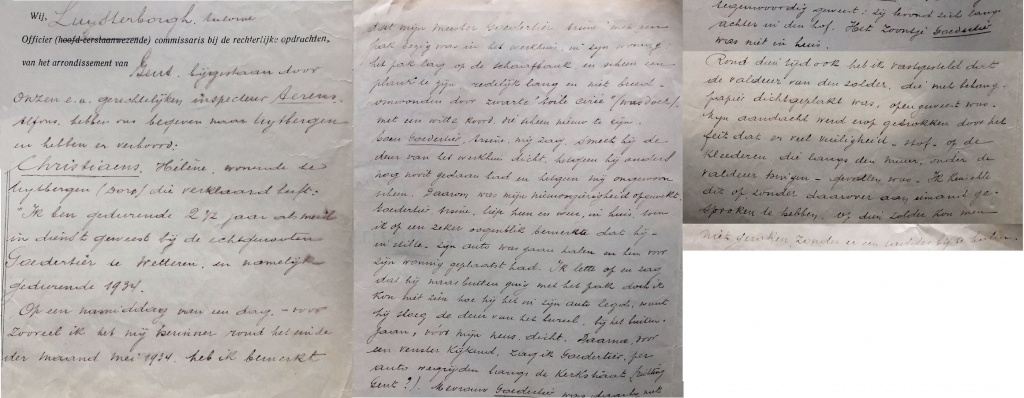 Wij, Luysterborgh, Antoine
Officier (hoofd-eerstaanwezende) commissaris bij de rechterlijke opdrachten,
van het arrondissement van Gent, bijgestaan door
onzen e.a. gerechtelijken inspecteur Aerens
Alfons, hebben ons begeven naar Uytbergen
en hebben er verhoord:
Christiaens, Hélène, wonende te
Uytbergen (dorp) die verklaard heeft:
"Ik ben gedurende 2 1/2 jaar als meid
in dienst geweest bij de echtgenooten
Goedertier te Wetteren, en namelijk
gedurende 1934.
Op een namiddag van een dag, - voor
zooveel ik het mij herinner rond het einde
der maand Mei 1934, heb ik bemerkt
dat mijn meester Goedertier Arsène met een
pak bezig was in het werkhuis, in zijn woning.
het pak lag op de schaafbank en scheen een
plank te zijn, redelijk lang en niet breed
omwonden door zwarte toile cirée (wasdoek)
met een witte koord, die scheen nieuw te zijn.
Toen Goedertier, Arsène, mij zag, smeet hij de
deur van het werkhuis dicht, hetgeen hij anders
nog nooit gedaan had en hetgeen mij ongewoon
scheen. Daarom was mijn nieuwsgierigheid opgewekt.
Goedertier Arsène, liep heen en weer, in huis, ben
ik op een zeker oogenblik bemerkte dat hij -
in stilte - zijn auto was gaan halen en hem voor
zijn woning geplaatst had. Ik lette op en zag
dat hij naar buiten ging met het pak doch ik
kon niet zien hoe hij het in zijn auto legde, want
hij sloeg de deur van het bureel, bij het buiten-
gaan, voor mijn neus, dicht. Daarna, door
een venster kijkend, zag ik Goedertier, per
auto wegrijden langs de Kerkstraat (richting
Gent?). Mevrouw Goedertier was daarbij niet
tegenwoordig geweest: zij bevond zich langs
achter in den hof. Het zoontje Goedertier
was niet in huis.
Rond dien tijd ook heb ik vastgesteld dat
de valdeur van den zolder, die met behang-
papier dichtgeplakt was, open geweest was.
Mijn aandacht werd erop getrokken door het
feit dat er veel vuiligheid - stof - op de
kleederen die langs den muur, onder de
valdeur hingen - gevallen was. Ik herinner
dit op zonder daarover aan iemand ge-
sproken te hebben. Op dien zolder kon men
niet geraken zonder er een ladder bij te halen.